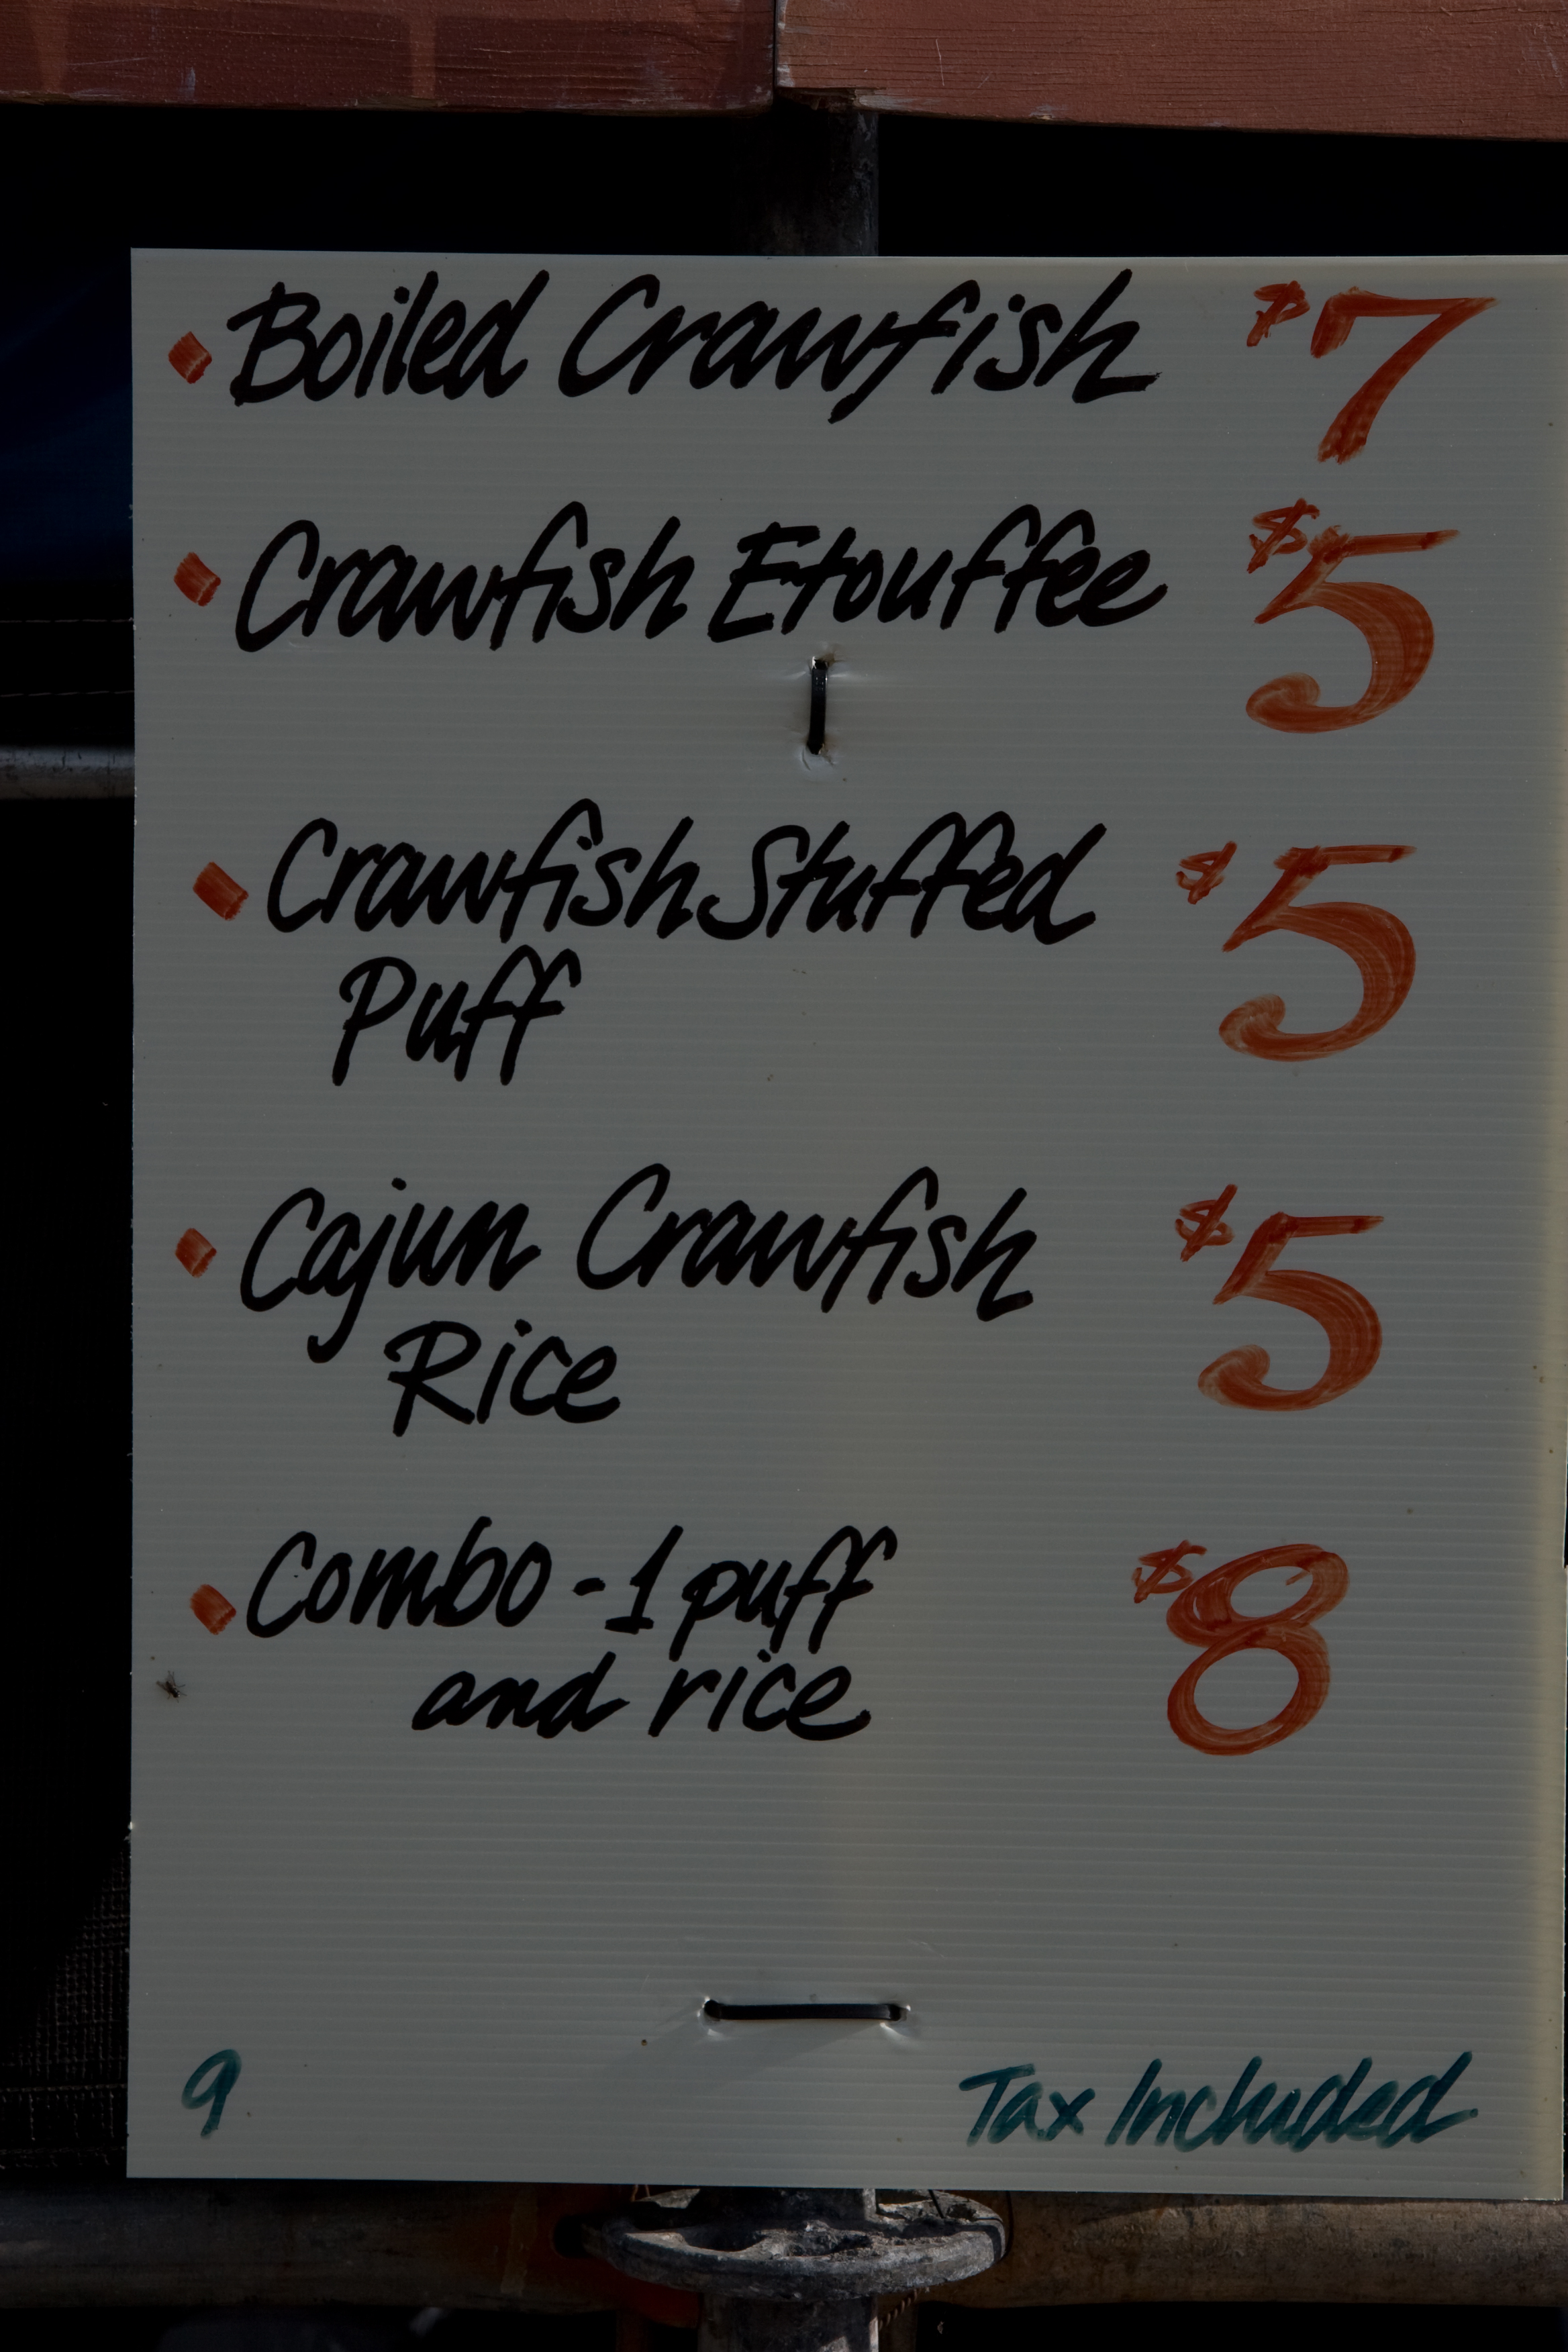 Boiled Crawfish $7
Crawfish Etouffee $5
Crawfish Stuffed $5
Puff
Cajun Crawfish $5
Rice
Combo - 1 puff $8
and rice
9 Tax Included